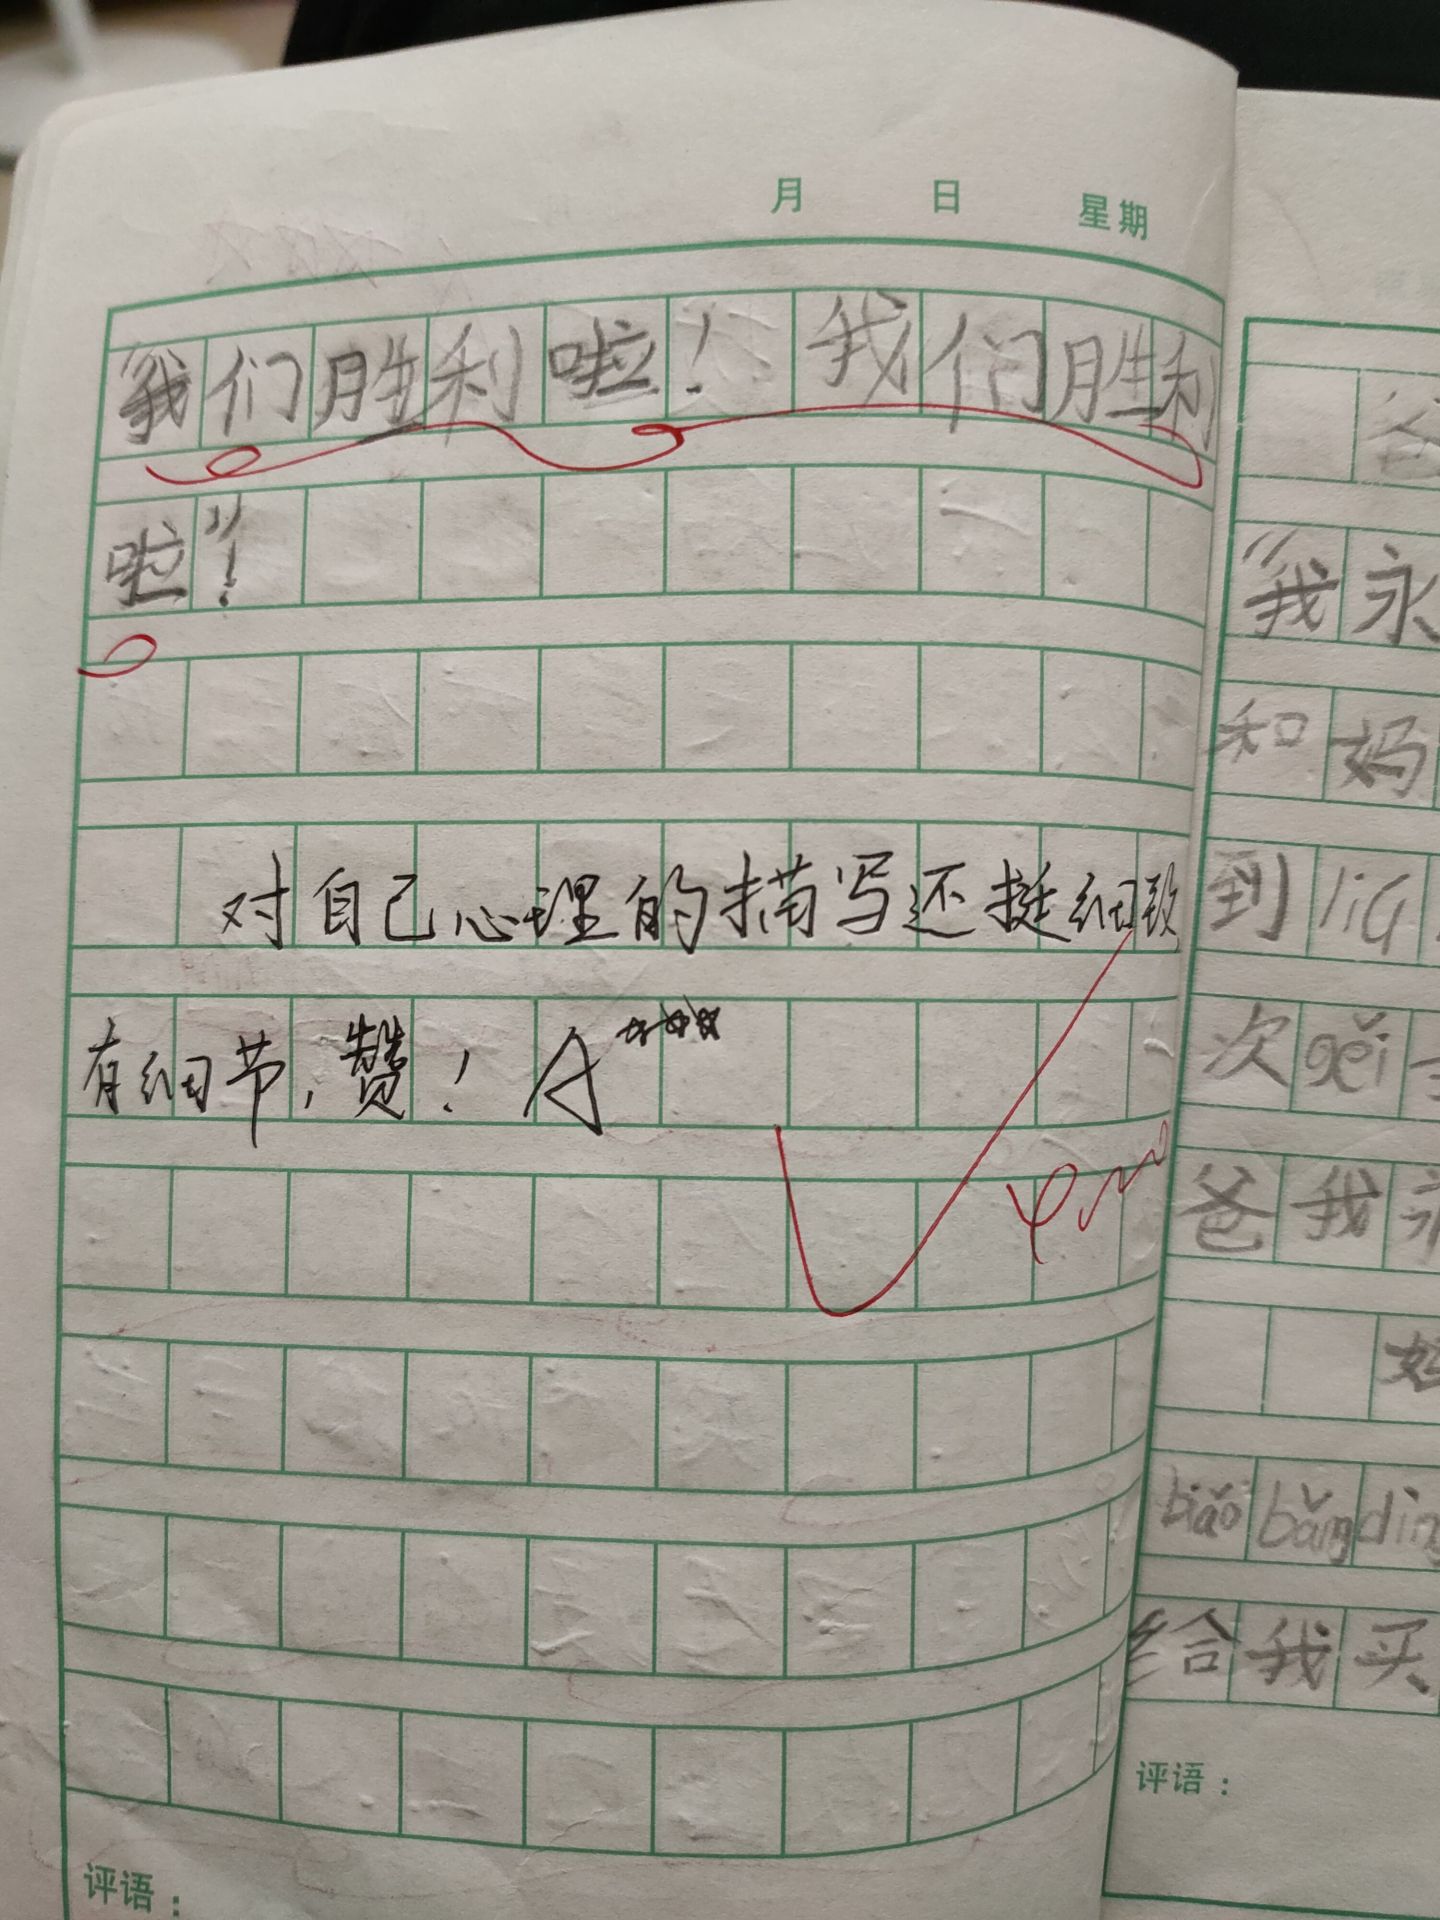 月 日 星期
“我们胜利啦！我们胜利
啦”！
对自己心理的描写还挺细致
有细节，赞！A☆☆☆
评语：
“我永
和妈
到
次gěi
爸我
妈
biǎo bǎng
给我买
评语：